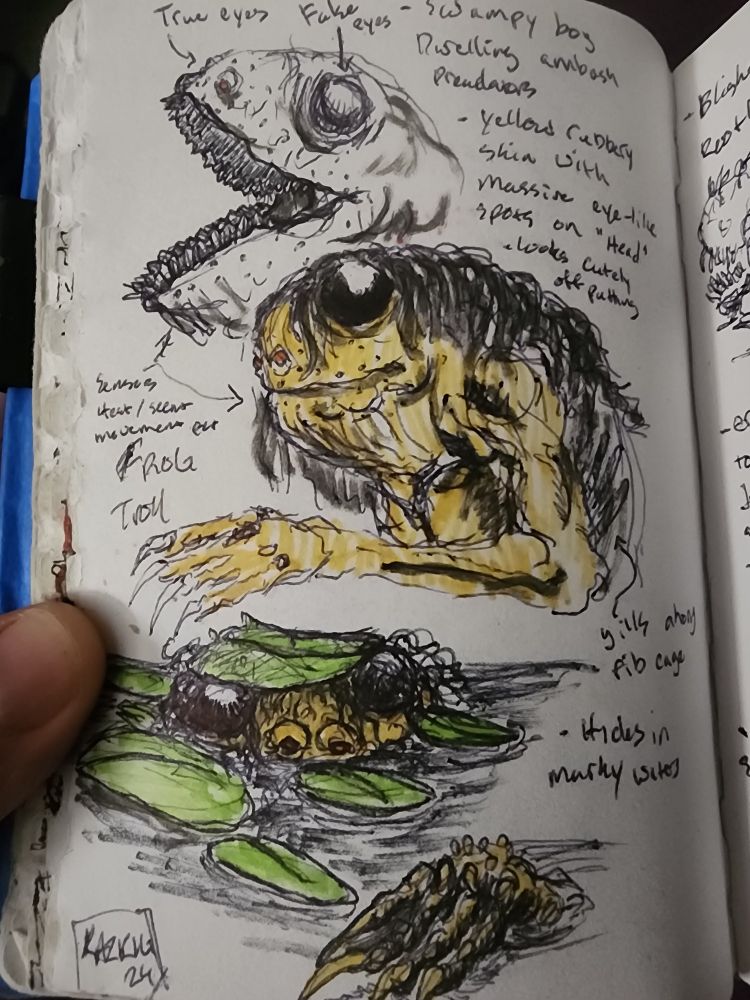 True eyes
Fake
eyes
- Swampy bog
Dwelling ambush
Preadators
- Yellow rubbery
skin with
massive eye-like
spots on "Head"
- looks cutely
off putting
Sensors
Heat/scent
movement ect
FROG
Troll
gills along
rib cage
- Hides in
murky
24
- Blish